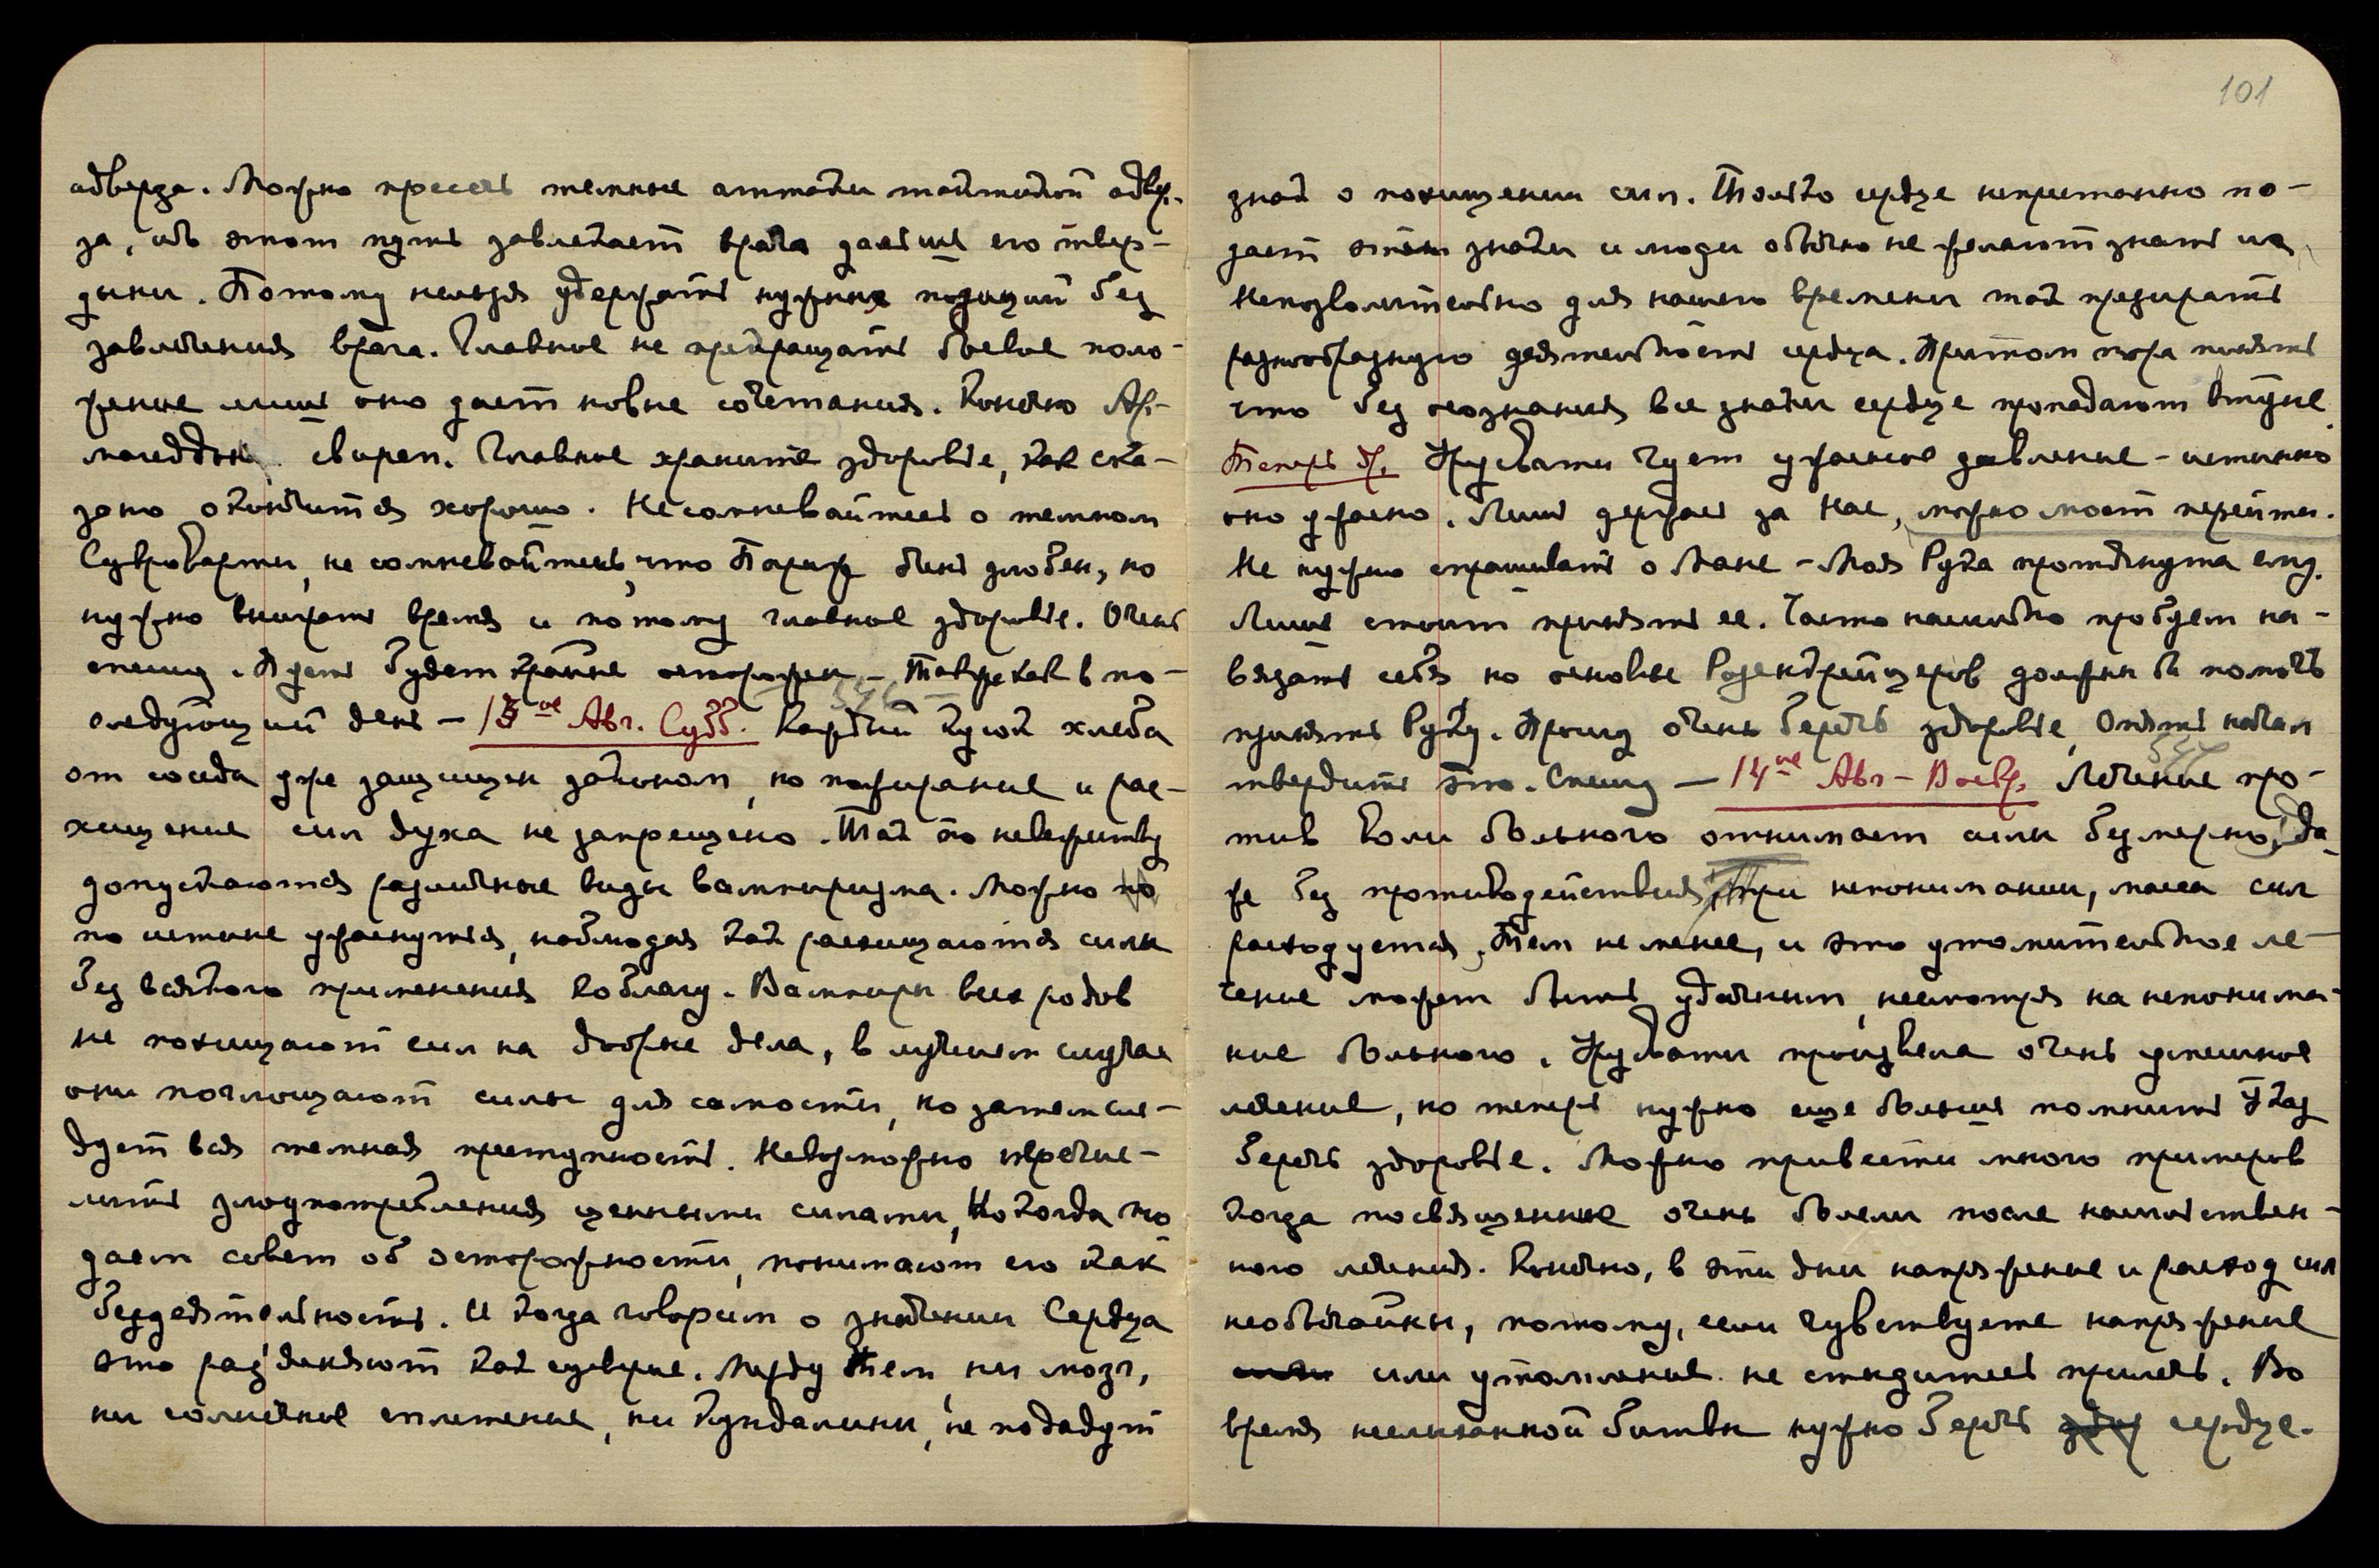 адверза. Можно пресечь темные аттаки тактикой адвер-
за, ибо этот путь завлекает врага дальше его твер-
дыни. Потому нельзя удержать нужных позиций без
завлечения врага. Главное не прекращать боевое поло-
жение лишь оно дает новые сочетания. Конечно Ар-
магеддон свиреп. Главное храните здоровье, как ска-
зано окончится хорошо. Не сомневайтесь о темном
не сомневайтесь, что Париж был злобен, но
нужно выиграть время и потому главное здоровье. Очень
спешу. Пусть будет крайне осторожен – Также как в по-
следующий день – 13ое Авг. Субб. 546 Каждый кусок хлеба
от соседа уже защищен законом, но пожирание и рас-
хищение сил духа не запрещено. Так по невежеству
допускаются различные виды вампиризма. Можно по
по истине ужаснуться, наблюдая как расхищаются силы
без всякого применения ко благу. Вампиры всех родов
не похищают сил на добрые дела, в лучшем случае
они поглощают силы для самости, но затем сле-
дует вся темная преступность. Невозможно перечис-
лить злоупотребления ценными силами, но когда кто
дает совет об осторожности, понимают его как
бездеятельность. И когда говорим о значении Сердца
это разъясняют как суеверие. Между тем, ни мозг,
ни солнечное сплетение, ни Кундалини, не подадут
101
знак о похищении сил. Только сердце непрестанно по-
дает этим знаки и люди обычно не желают знать их
Непозволительно для нашего времени так презирать
разнообразную деятельность сердца. Притом пора понять
что без осознания все знаки сердце пропадают втуне.
Теперь др. Урусвати чует ужасное давление – истинно
оно ужасно. Лишь держась за Нас, можно мост перейти.
Не нужно спрашивать о Мане – Моя Рука протянута ему.
Лишь стоит принять ее. Часто насильно пробует на-
вязать себя но основы Розенкрейцеров должны бы помочь
принять Руку. Прошу очень беречь здоровье, Опять начал
твердить это. Спешу – 14ое Авг – Воскр. 547 Лечение про-
тив воли больного отнимает силы безмерно, да
же без противодействия, при непонимании, масса сил
расходуется. Тем не менее, и это утомительное ле-
чение может быть удачным, несмотря на непонима-
ние больного. Урусвати произвела очень успешное
лечение, но теперь нужно еще больше помнить Указ
беречь здоровье. Можно привести много примеров
когда посвященные очень болели после насильствен-
ного лечения. Конечно, в эти дни напряжение и расход сил
необычайны, потому, если чувствуете напряжение
или утомление не стыдитесь прилечь. Во
время неслыханной битвы нужно беречь сердце.